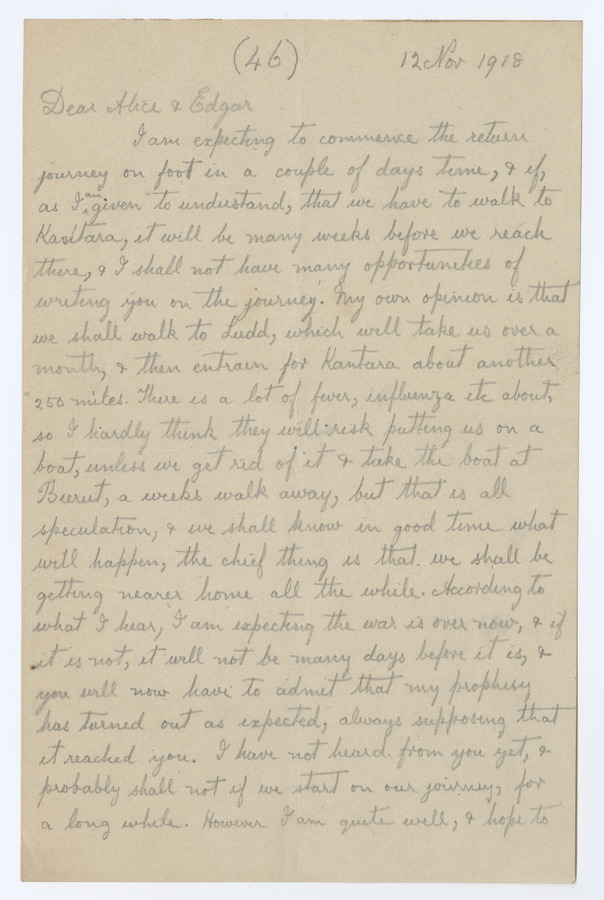 (46) 12 Nov 1918
Dear Alice & Edgar
I am expecting to commence the return
journey on foot in a couple of days time, & if,
as I am given to understand, that we have to walk to
Kantara, it will be many weeks before we reach
there, & I shall not have many opportunities of
writing you on the journey. My own opinion is that
we shall walk to Ludd, which will take us over a
month, & then entrain for Kantara about another
250 miles. There is a lot of fever, influenza etc about,
so I hardly think they will risk putting us on a
boat, unless we get rid of it & take the boat at
Bierut, a weeks walk away, but that is all
speculation, & we shall know in good time what
will happen, the chief thing is that we shall be
getting nearer home all the while. According to
what I hear, I am expecting the war is over now, & if
it is not, it will not be many days before it is, &
you will now have to admit that my prophesy
has turned out as expected, always supposing that
it reached you. I have not heard from you yet, &
probably shall not if we start on our journey, for
a long while. However I am quite well, & hope to